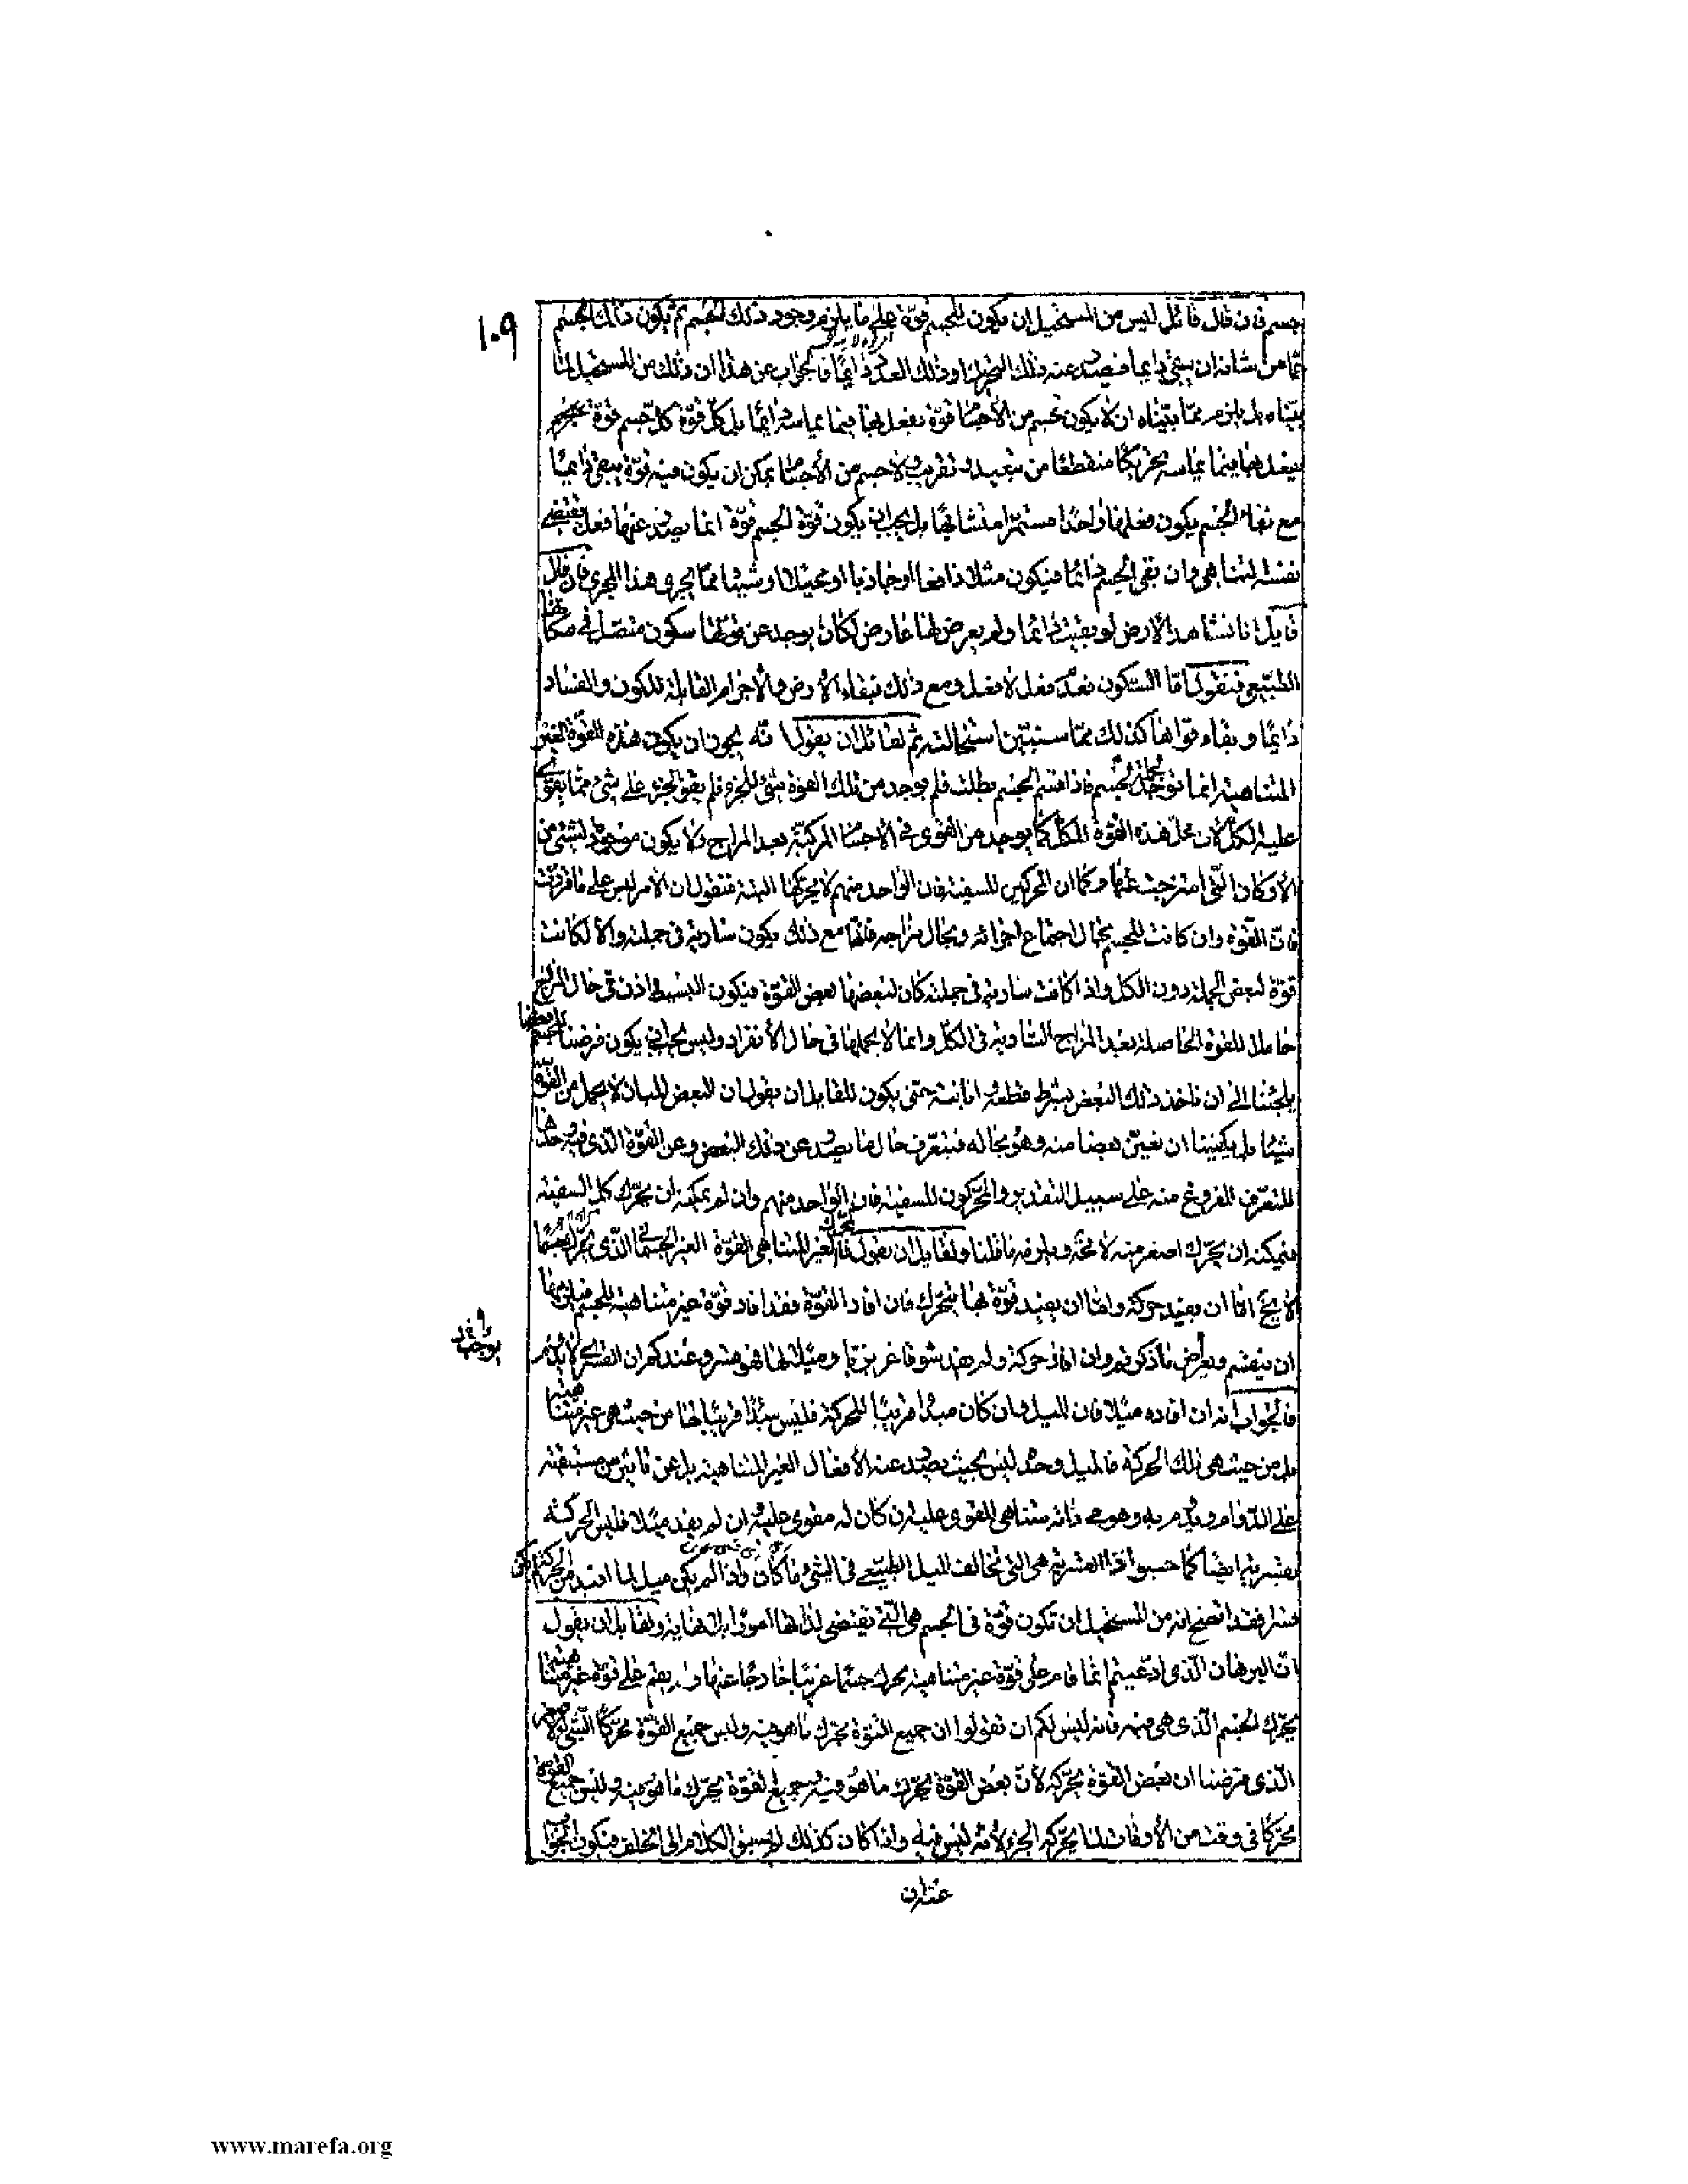 ١٠٩
جسم فان قال قائل ليس من المستحيل ان يكون للجسم قوة على ما يلزم وجود ذلك الجسم ثم يكون ذلك الجسم
مما من شانه ان يبقى دايما فيصدر عنه ذلك او ذلك العدد دائما فالجواب عن هذا ان ذلك من المستحيل لما
بيناه بل يلزم مما بيناه ان لا يكون لجسم من الأجسام قوة يفعل بها فيما يماسه دائما بل كل قوة كل جسم قوة
يفعل بها فيما يماسه تحريكا منقطعا من تبعيد وتقريب ولا جسم من الأجسام يمكن ان يكون فيه قوة يبقى دائما
مع بقاء الجسم يكون فعلها واحدا مستمرا متشابها بل يجب ان يكون قوة الجسم قوة انما يصدر عنها فعل يقتضى
نفسه التناهى وان بقى الجسم دائما فيكون مثلا دافعا او جاذبا او محيلا او شيئا مما يجرى هذا المجرى فان قال
قايل انا نشاهد الأرض لو بقيت دائما ولم يعرض لها عارض لكان يوجد عن قوتها سكون متصل فى مكانها
الطبيعى فنقول اما السكون فعدم فعل لا فعل ومع ذلك فبقاء الأرض والأجرام القابلة للكون والفساد
دائما وبقاء قواها كذلك مما سنبين استحالته ثم لقائل ان يقول انه يجوز ان يكون هذه القوة الغير
المتناهية انما توجد لجملة الجسم فاذا قسم الجسم بطلت فلم يوجد من تلك القوة شئ للجزء فلم يقو الجزء على شئ مما يقوى
عليه الكل لان هذه القوة للكل كما يوجد من القوى فى الأجسام المركبة بعد المزاج ولا يكون موجودا لشئ من
الأركان التى امتزجت عنها وكما ان المحركين للسفينة فان الواحد منهم لا يحركها البتة فنقول ان الامر ليس على ما قدرت
فان القوة وان كانت للجسم بحال اجتماع اجزائه وبحال مزاجه فانها مع ذلك يكون سارية فى جملته والا لكانت
قوة لبعض الجملة دون الكل واذا كانت سارية فى جملته كان لبعضها بعض القوة فيكون البسيط اذن فى حال المزاج
حاملا للقوة الحاصلة بعد المزاج السارية فى الكل وانما لا يحملها فى حال الأنفراد وليس يجب ان يكون فرضنا للجسم بعضا
يلجئنا الى ان ناخذ ذلك البعض بشرط قطعه او ابانته حتى يكون للقايل ان يقول ان البعض المبان لا يحمل من القوة
شيئا بل يكفينا ان نعين بعضا منه وهو بحاله فنتعرف حال ما يصدر عن ذلك البعض وعن القوة الذى فيه وحدها
التعرف المفروغ منه على سبيل التقدير والمحركون للسفينة فان الواحد منهم وان لم يمكنه ان يحرك كل السفينة
فيمكنه ان يحرك اصغر منه لا محة ويلزمه ما قلنا ولقايل ان يقول المحرك الغير المتناهى القوة الغير الجسمانى الذى يحرك جسما
لا يخ اما ان يفيد حركة واما ان يفيد قوة بها يتحرك فان افاد القوة فقد افاد قوة غير متناهية للجسم فيلزمها
ان ينقسم ويعرض ما ذكرتم وان افاد حركة ولم يفد شوقا غريزيا وميلا لها فهو قسر وعندكم ان القسرى لا يدوم
فالجواب انه ان افاده ميلا فان الميل وان كان مبدا قريبا للحركة فليس مبدا قريبا لها من حيث هى غير متناهية
بل من حيث هى تلك الحركة فالميل وحده ليس بحيث يصدر عنه الأفعال الغير المتناهية بل عن تاثير من مستبقيه
على الدوام ويدوم به وهو فى ذاته متناهى المقوى عليه ان كان له مقوى عليه وان لم يفد ميلا فليس الحركة
بقسرية ايضا كما حسبوا اذ القسرية هى التى تخالف الميل الطبيعى فى الشئ واذا لم يكن ميل لما افيد من الحركة لم يكن
قسرا فقد اتضح انه من المستحيل ان تكون قوة فى الجسم هى التى تقتضى لذاتها امورا بلا نهاية ولقايل ان يقول
ان البرهان الذى ادعيتم انما قام على قوة غير متناهية يحرك جسما غريبا خارجا عنها ولم يقم على قوة غير متناهية
يحرك الجسم الذى هى فيه فانه ليس لكم ان تقولوا ان جميع القوة تحرك ما هو فيه وليس جميع القوة محركا الشئ الاصغر
الذى فرضنا ان بعض القوة يحركه لان بعض القوة يحرك ما هو فيه وجميع القوة يحرك ما هو فيه وليس جميع القوة
محركا فى وقت من الأوقات لما يحركه الجزء لأنه ليس فيه واذا كان كذلك لم يسبق الكلام الى الخلف فيكون الجواب